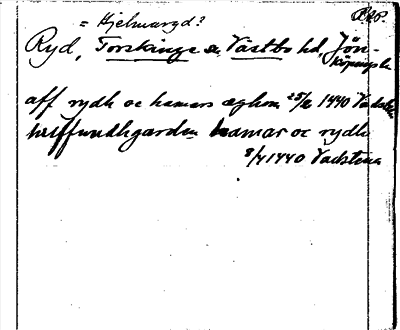 = Hjelmaryd?
Ryd, Torskinge sn, Västbo hd, Jön-
köpings län
aff rydh oc hamars æghom 25/2 1440 Vadstena
hamar oc rydh
8/4 1440 Vadstena